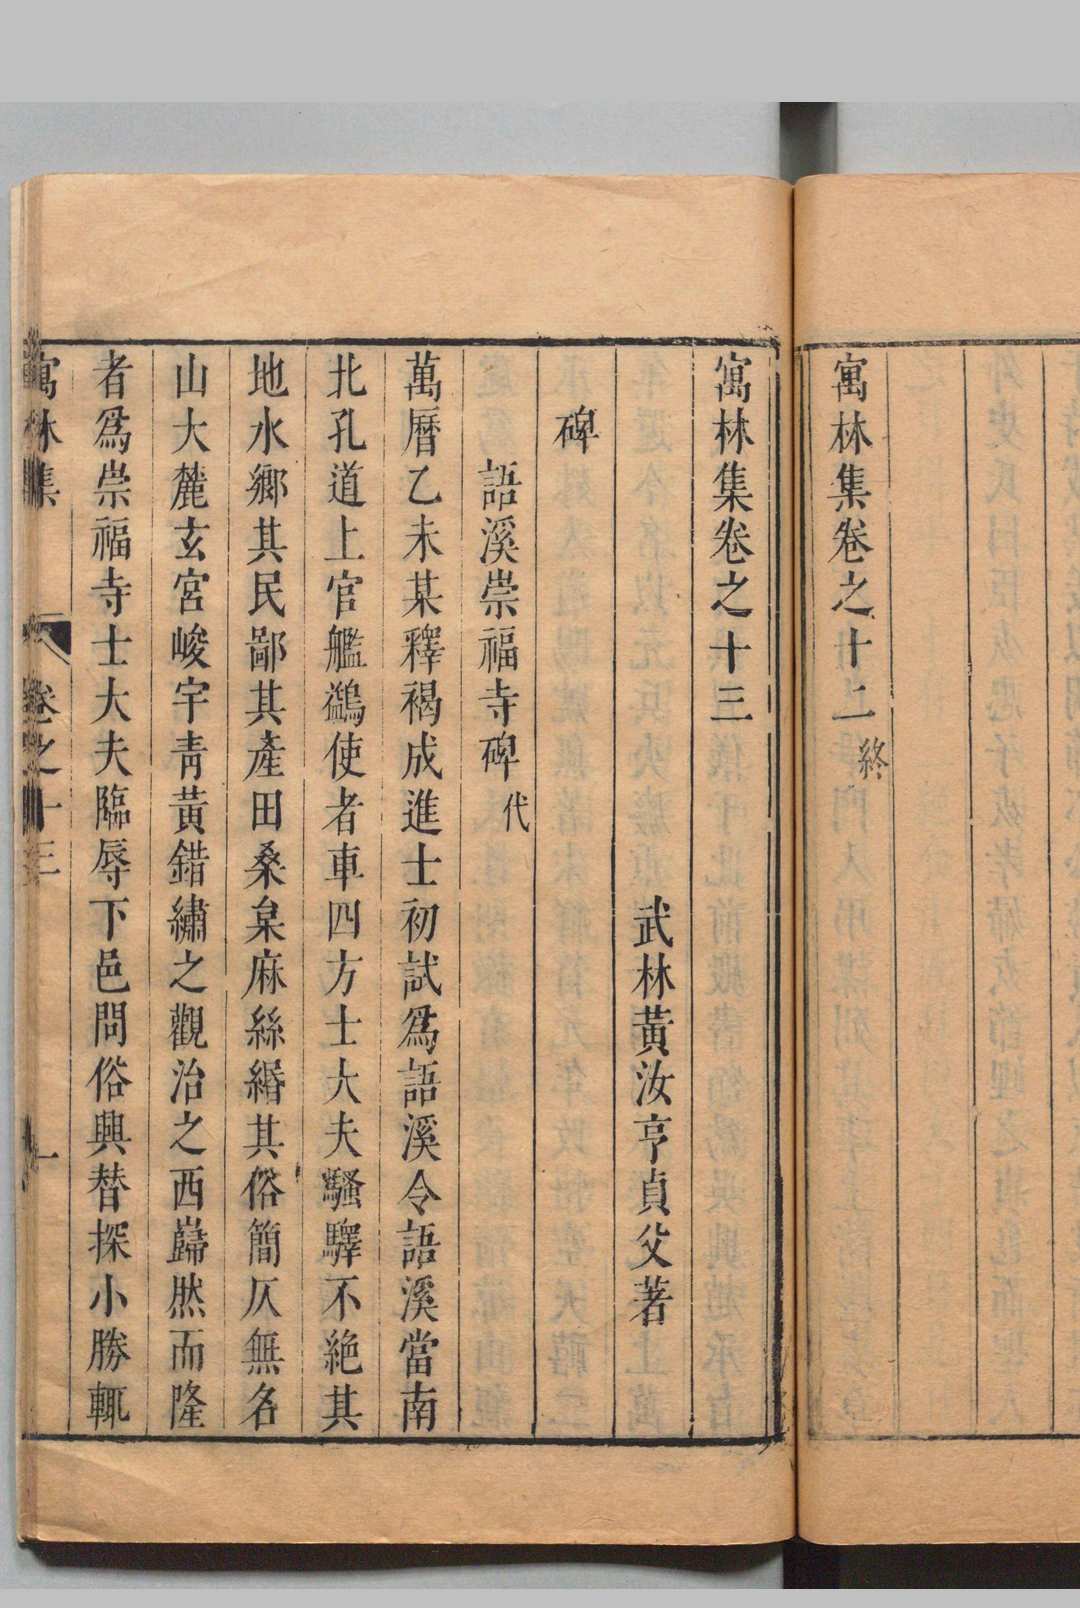 寓林集卷之十二終
寓林集卷之十三
武林黃汝亨貞父著
碑
語溪崇福寺碑代
萬曆乙未某釋褐成進士初試爲語溪令語溪當南
北孔道上官艦鷁使者車四方士大夫騷驛不絶其
地水鄉其民鄙其產田桑枲麻絲緡其俗簡仄無名
山大麓玄宮峻宇靑黃錯繡之觀治之西巋然而隆
者爲崇福寺士大夫臨辱下邑問俗興替探小勝輒
寓林集
卷之十三
一